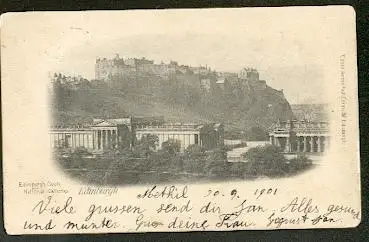 Edinburgh Castle
National Galleries
Edinburgh
Methil 20. 9. 1901
Viele grussen send dir Jan. Alles gesund
und munter. Grus deine Frau. August Jan.